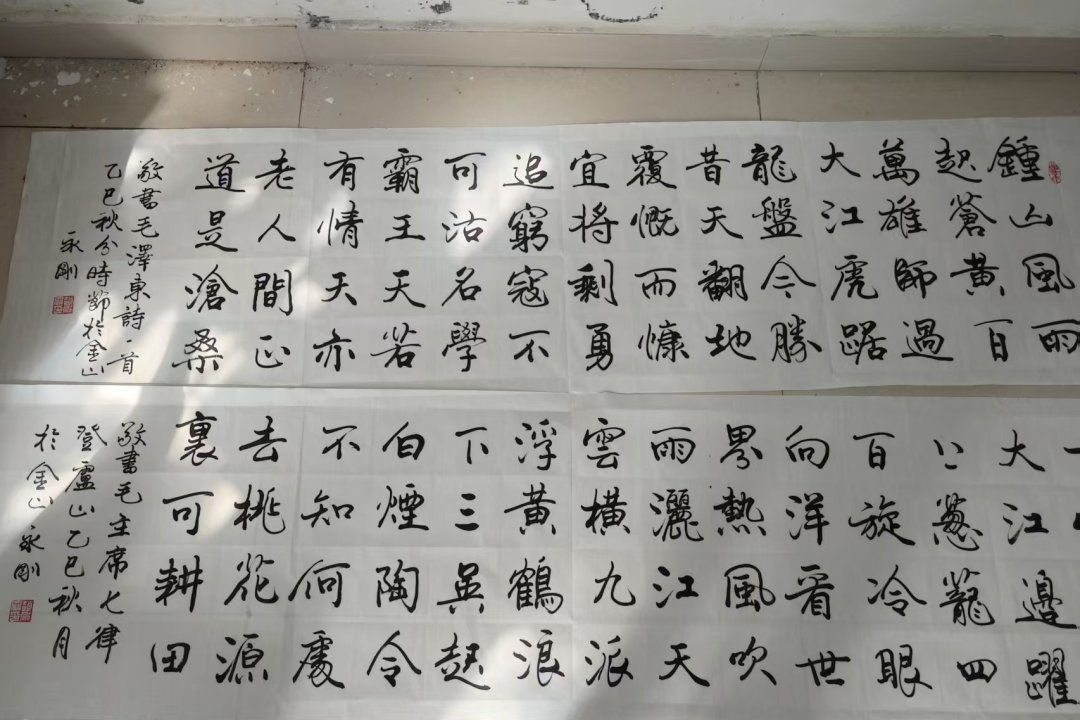 鍾山風雨
起蒼黃百
萬雄師過
大江虎踞
龍盤今勝
昔天翻地
覆慨而慷
宜將剩勇
追窮寇不
可沽名學
霸王天若
有情天亦
老人間正
道是滄桑
敬書毛澤東詩一首
乙巳秋分時節於金山
永剛
大江邊躍
上葱蘢四
百旋冷眼
向洋看世
界熱風吹
雨灑江天
雲橫九派
浮黃鶴浪
下三吳起
白煙陶令
不知何處
去桃花源
裏可耕田
敬書毛主席七律
登盧山乙巳秋月
於金山永剛